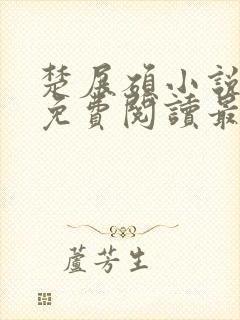 楚展碩小說
免費閱讀最
蘆芳生